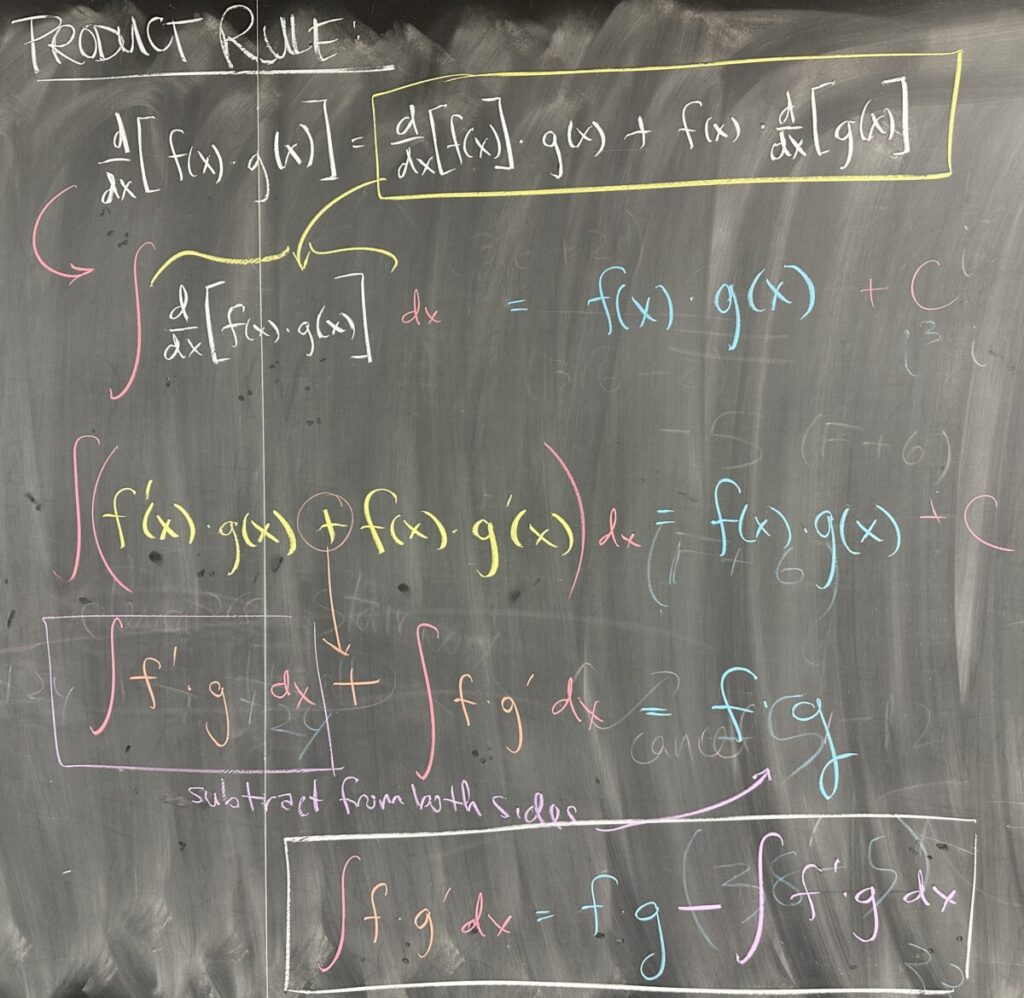 PRODUCT RULE:
d/dx [f(x) · g(x)] = d/dx [f(x)] · g(x) + f(x) · d/dx [g(x)]
∫ d/dx [f(x) · g(x)] dx = f(x) · g(x) + C
∫ (f'(x) · g(x) + f(x) · g'(x)) dx = f(x) · g(x) + C
∫ f' · g dx + ∫ f · g' dx = f · g
subtract from both sides
∫ f · g' dx = f · g − ∫ f' · g dx